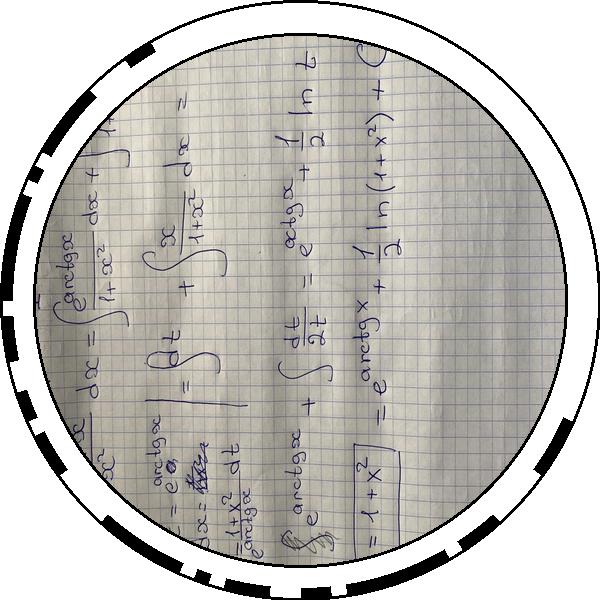 x/x² dx = ∫ e^arctgx/(1+x²) dx + ∫
t = e^arctgx | = ∫ dt + ∫ x/(1+x²) dx =
dx =
= (1+x²)/e^arctgx dt
e^arctgx + ∫ dt/2t = e^arctgx + 1/2 ln t
= 1+x² = e^arctgx + 1/2 ln(1+x²) + C